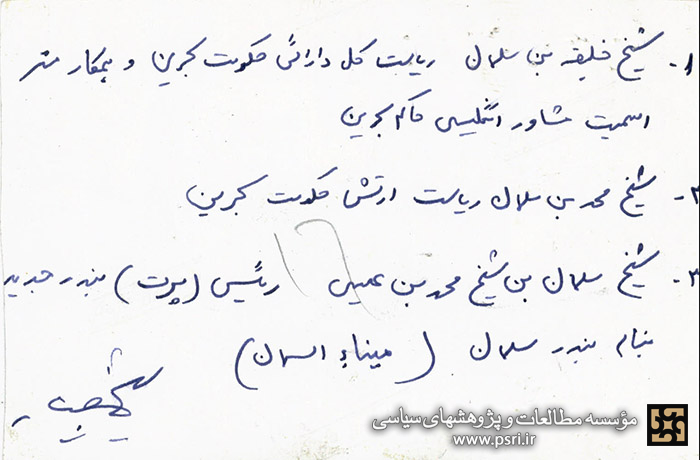 ۱- شیخ خلیفه بن سلمان ریاست کل دارائی حکومت بحرین و همکار مستر
اسمیت مشاور انگلیسی حاکم بحرین
۲- شیخ محمد بن سلمان ریاست ارتش حکومت بحرین
۳- شیخ سلمان بن شیخ محمد بن عیسی رئیس (پورت) بندر جدید
بنام بندر سلمان (میناء السلمان)
مؤسسه مطالعات و پژوهشهای سیاسی
www.psri.ir